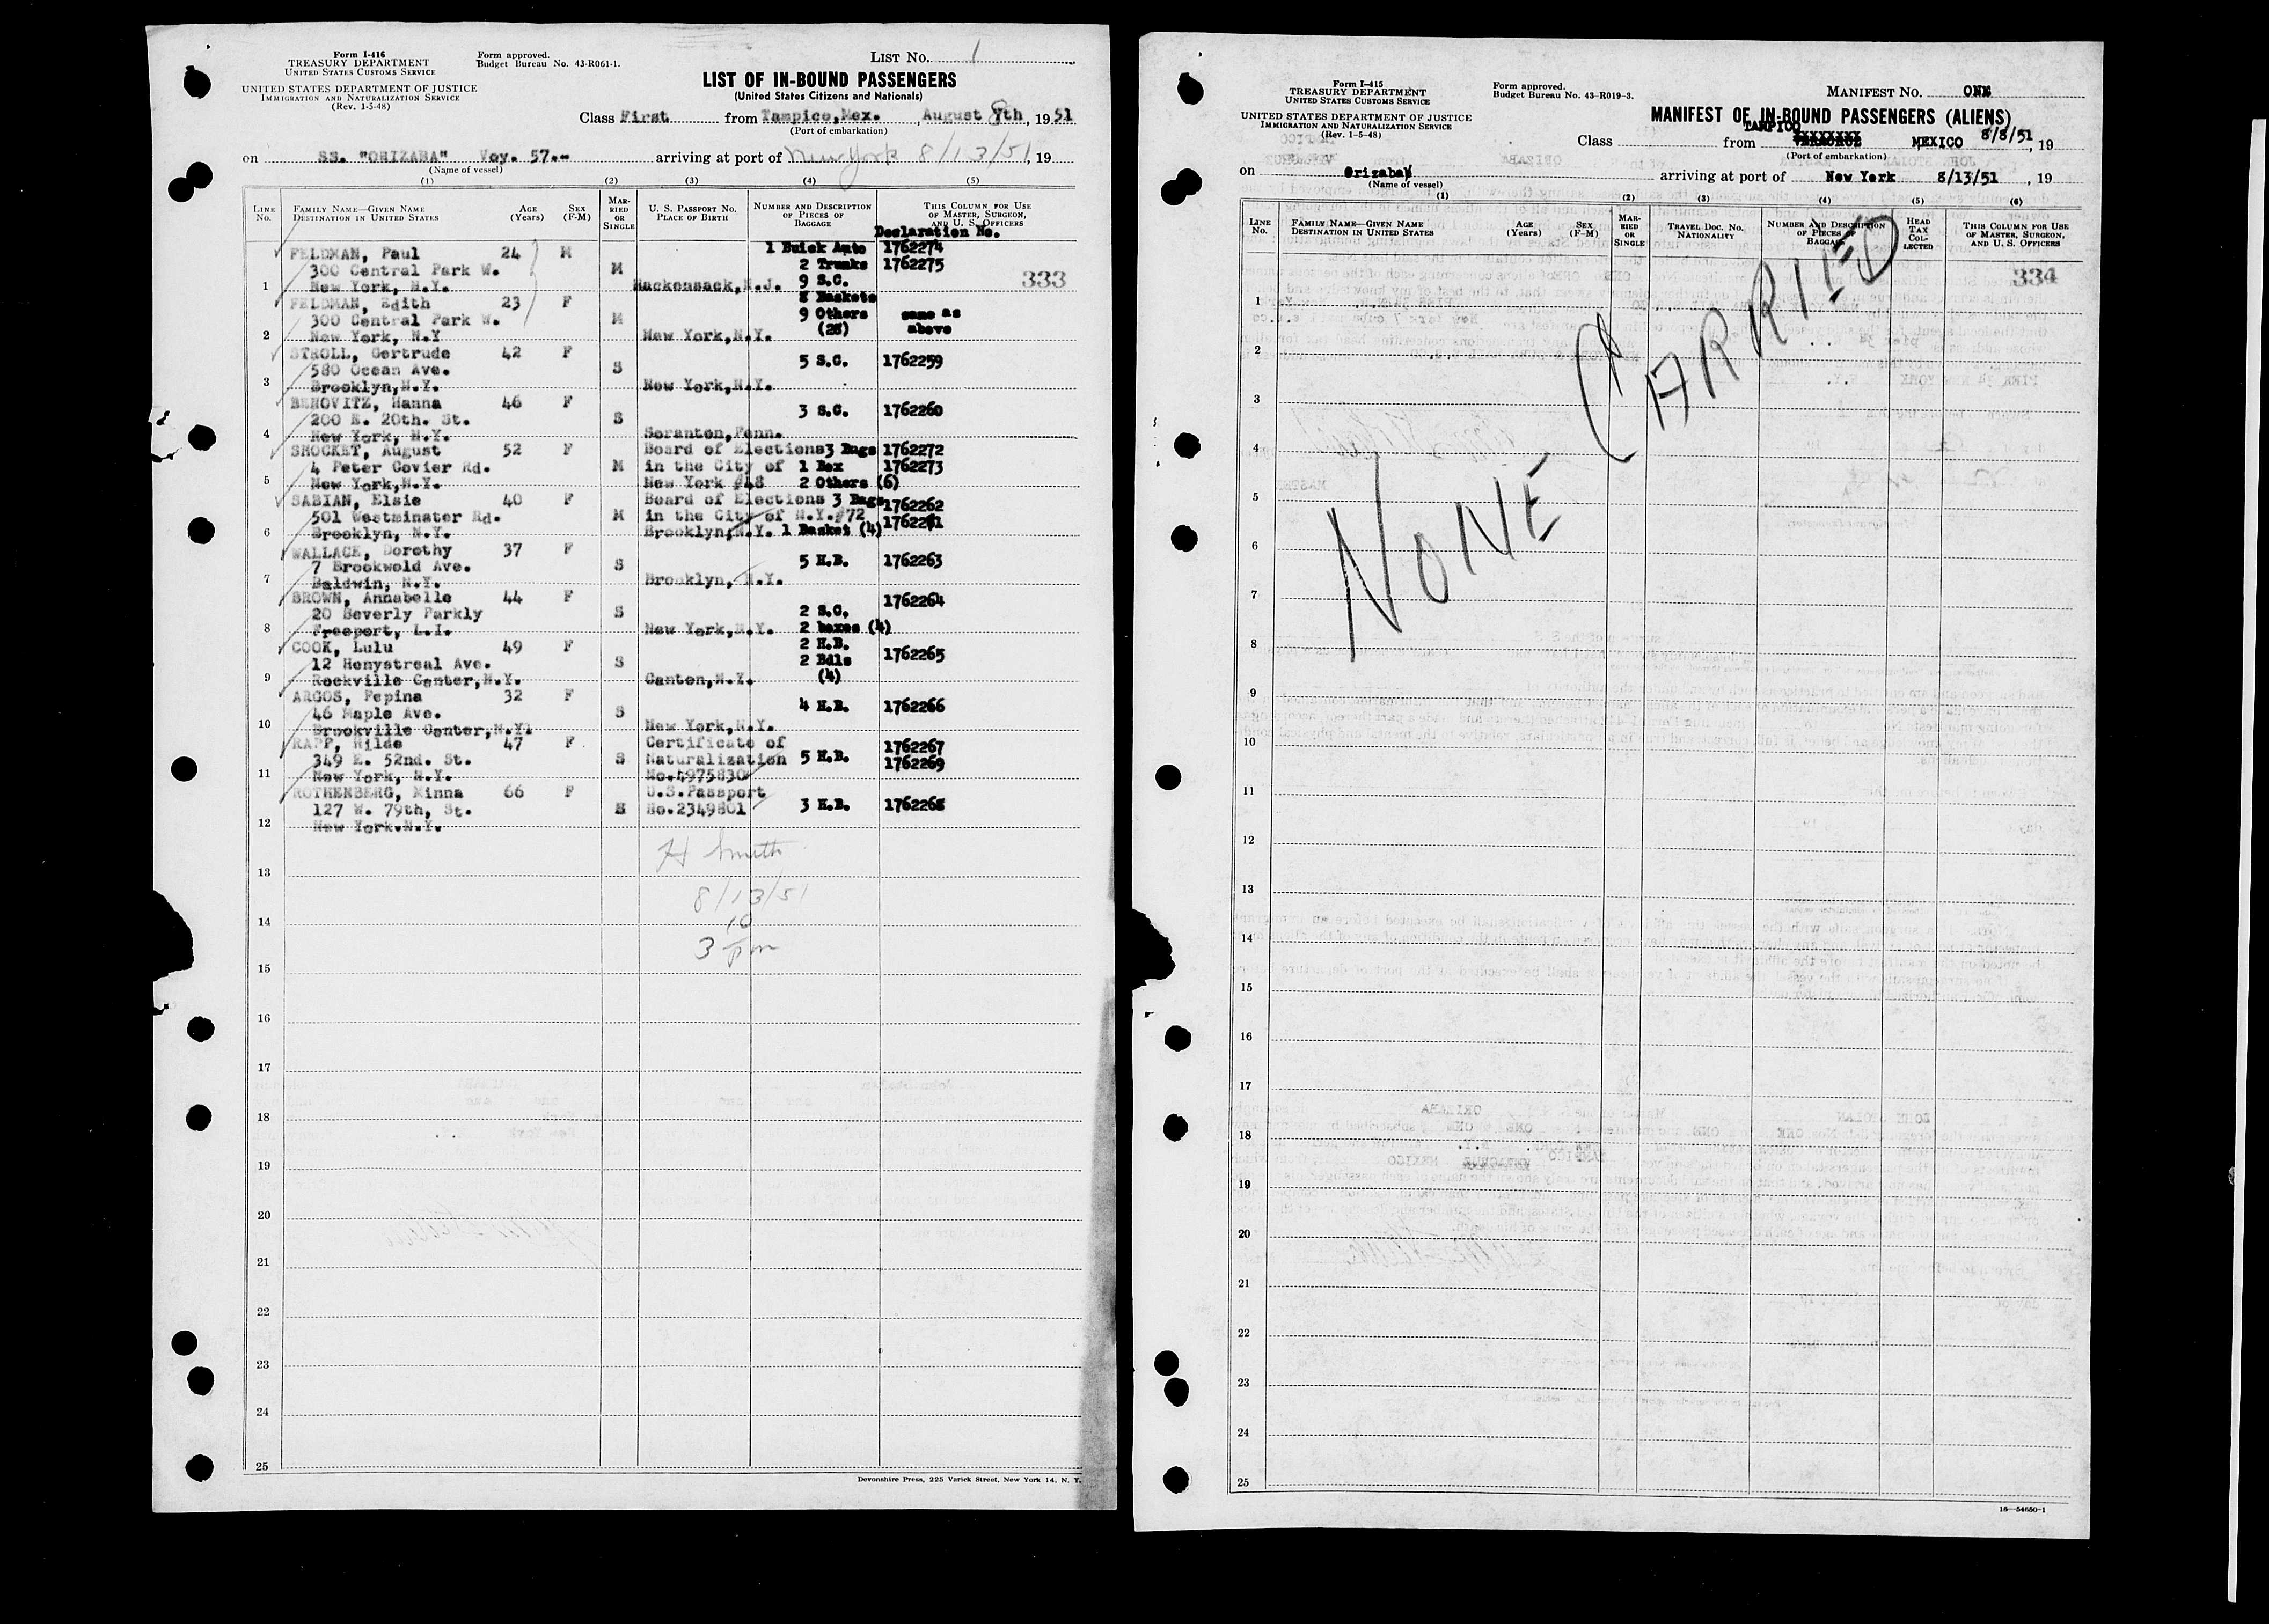 Form I-416
TREASURY DEPARTMENT
UNITED STATES CUSTOMS SERVICE
UNITED STATES DEPARTMENT OF JUSTICE
IMMIGRATION AND NATURALIZATION SERVICE
(Rev. 1-5-48)
Form approved.
Budget Bureau No. 43-R061-1.
LIST No. 1
LIST OF IN-BOUND PASSENGERS
(United States Citizens and Nationals)
Class First from Tampico, Mex. , August 8th, 19 51
(Port of embarkation)
on SS. "ORIZABA" Voy. 57.- arriving at port of New York 8/13/51, 19
(Name of vessel)
(1) (2) (3) (4) (5)
LINE No. FAMILY NAME—GIVEN NAME DESTINATION IN UNITED STATES AGE (Years) SEX (F-M) MARRIED OR SINGLE U. S. PASSPORT No. PLACE OF BIRTH NUMBER AND DESCRIPTION OF PIECES OF BAGGAGE THIS COLUMN FOR USE OF MASTER, SURGEON, AND U. S. OFFICERS
Declaration No.
FELDMAN, Paul 24 M 1 Buick Auto 1762274
300 Central Park W. M 2 Trunks 1762275
1 New York, N.Y. Hackensack, N.J. 9 S.C. 333
8 Baskets
FELDMAN, Edith 23 F 9 Others same as
300 Central Park W. M (28) above
2 New York, N.Y New York, N.Y.
STROLL, Gertrude 42 F 5 S.C. 1762259
580 Ocean Ave. S
3 Brooklyn, N.Y. New York, N.Y.
BEHOVITZ, Hanna 46 F 3 S.C. 1762260
200 E. 20th. St. S
4 New York, N.Y. Scranton, Penn.
SHOCKET, August 52 F Board of Elections 3 Bags 1762272
4 Peter Covier Rd. M in the City of 1 Box 1762273
5 New York, N.Y. New York #48 2 Others (6)
SABIAN, Elsie 40 F Board of Elections 3 Bags 1762262
501 Westminster Rd. M in the City of N.Y. #72
6 Brooklyn, N.Y. Brooklyn, N.Y. 1 Basket (4)
WALLACE, Dorothy 37 F 5 H.B. 1762263
7 Brookwold Ave. S
7 Baldwin, N.Y. Brooklyn, N.Y.
BROWN, Annabelle 44 F 1762264
20 Beverly Parkly S 2 S.C.
8 Freeport, L.I. New York, N.Y. 2 boxes (4)
COOK, Lulu 49 F 2 H.B.
12 Henystreal Ave. S 2 Bdls 1762265
9 Rockville Center, N.Y. Canton, N.Y. (4)
ARGOS, Pepina 32 F 4 H.B. 1762266
46 Maple Ave. S
10 Brookville Center, N.Y. New York, N.Y.
RAPP, Hilde 47 F Certificate of 1762267
349 E. 52nd. St. S Naturalization 5 H.B. 1762269
11 New York, N.Y. No. 4975830
ROTHENBERG, Minna 66 F U.S. Passport
127 W. 79th, St. S No. 2349801 3 H.B. 1762268
12 New York. N.Y.
H Smith
13
8/13/51
14
10
3 pm
15
16
17
18
19
20
21
22
23
24
25
Devonshire Press, 225 Varick Street, New York 14, N. Y.
Form I-415
TREASURY DEPARTMENT
UNITED STATES CUSTOMS SERVICE
UNITED STATES DEPARTMENT OF JUSTICE
IMMIGRATION AND NATURALIZATION SERVICE
(Rev. 1-5-48)
Form approved.
Budget Bureau No. 43-R019-3.
MANIFEST No. ONE
MANIFEST OF IN-BOUND PASSENGERS (ALIENS)
TAMPICO
Class from VERACRUZ MEXICO 8/8/51, 19
(Port of embarkation)
on Orizaba arriving at port of New York 8/13/51 , 19
(Name of vessel)
(1) (2) (3) (4) (5) (6)
LINE No. FAMILY NAME—GIVEN NAME DESTINATION IN UNITED STATES AGE (Years) SEX (F-M) MARRIED OR SINGLE TRAVEL DOC. No. NATIONALITY NUMBER AND DESCRIPTION OF PIECES OF BAGGAGE HEAD TAX COLLECTED THIS COLUMN FOR USE OF MASTER, SURGEON, AND U. S. OFFICERS
334
NONE CARRIED
1
2
3
4
5
6
7
8
9
10
11
12
13
14
15
16
17
18
19
20
21
22
23
24
25
16—54650-1